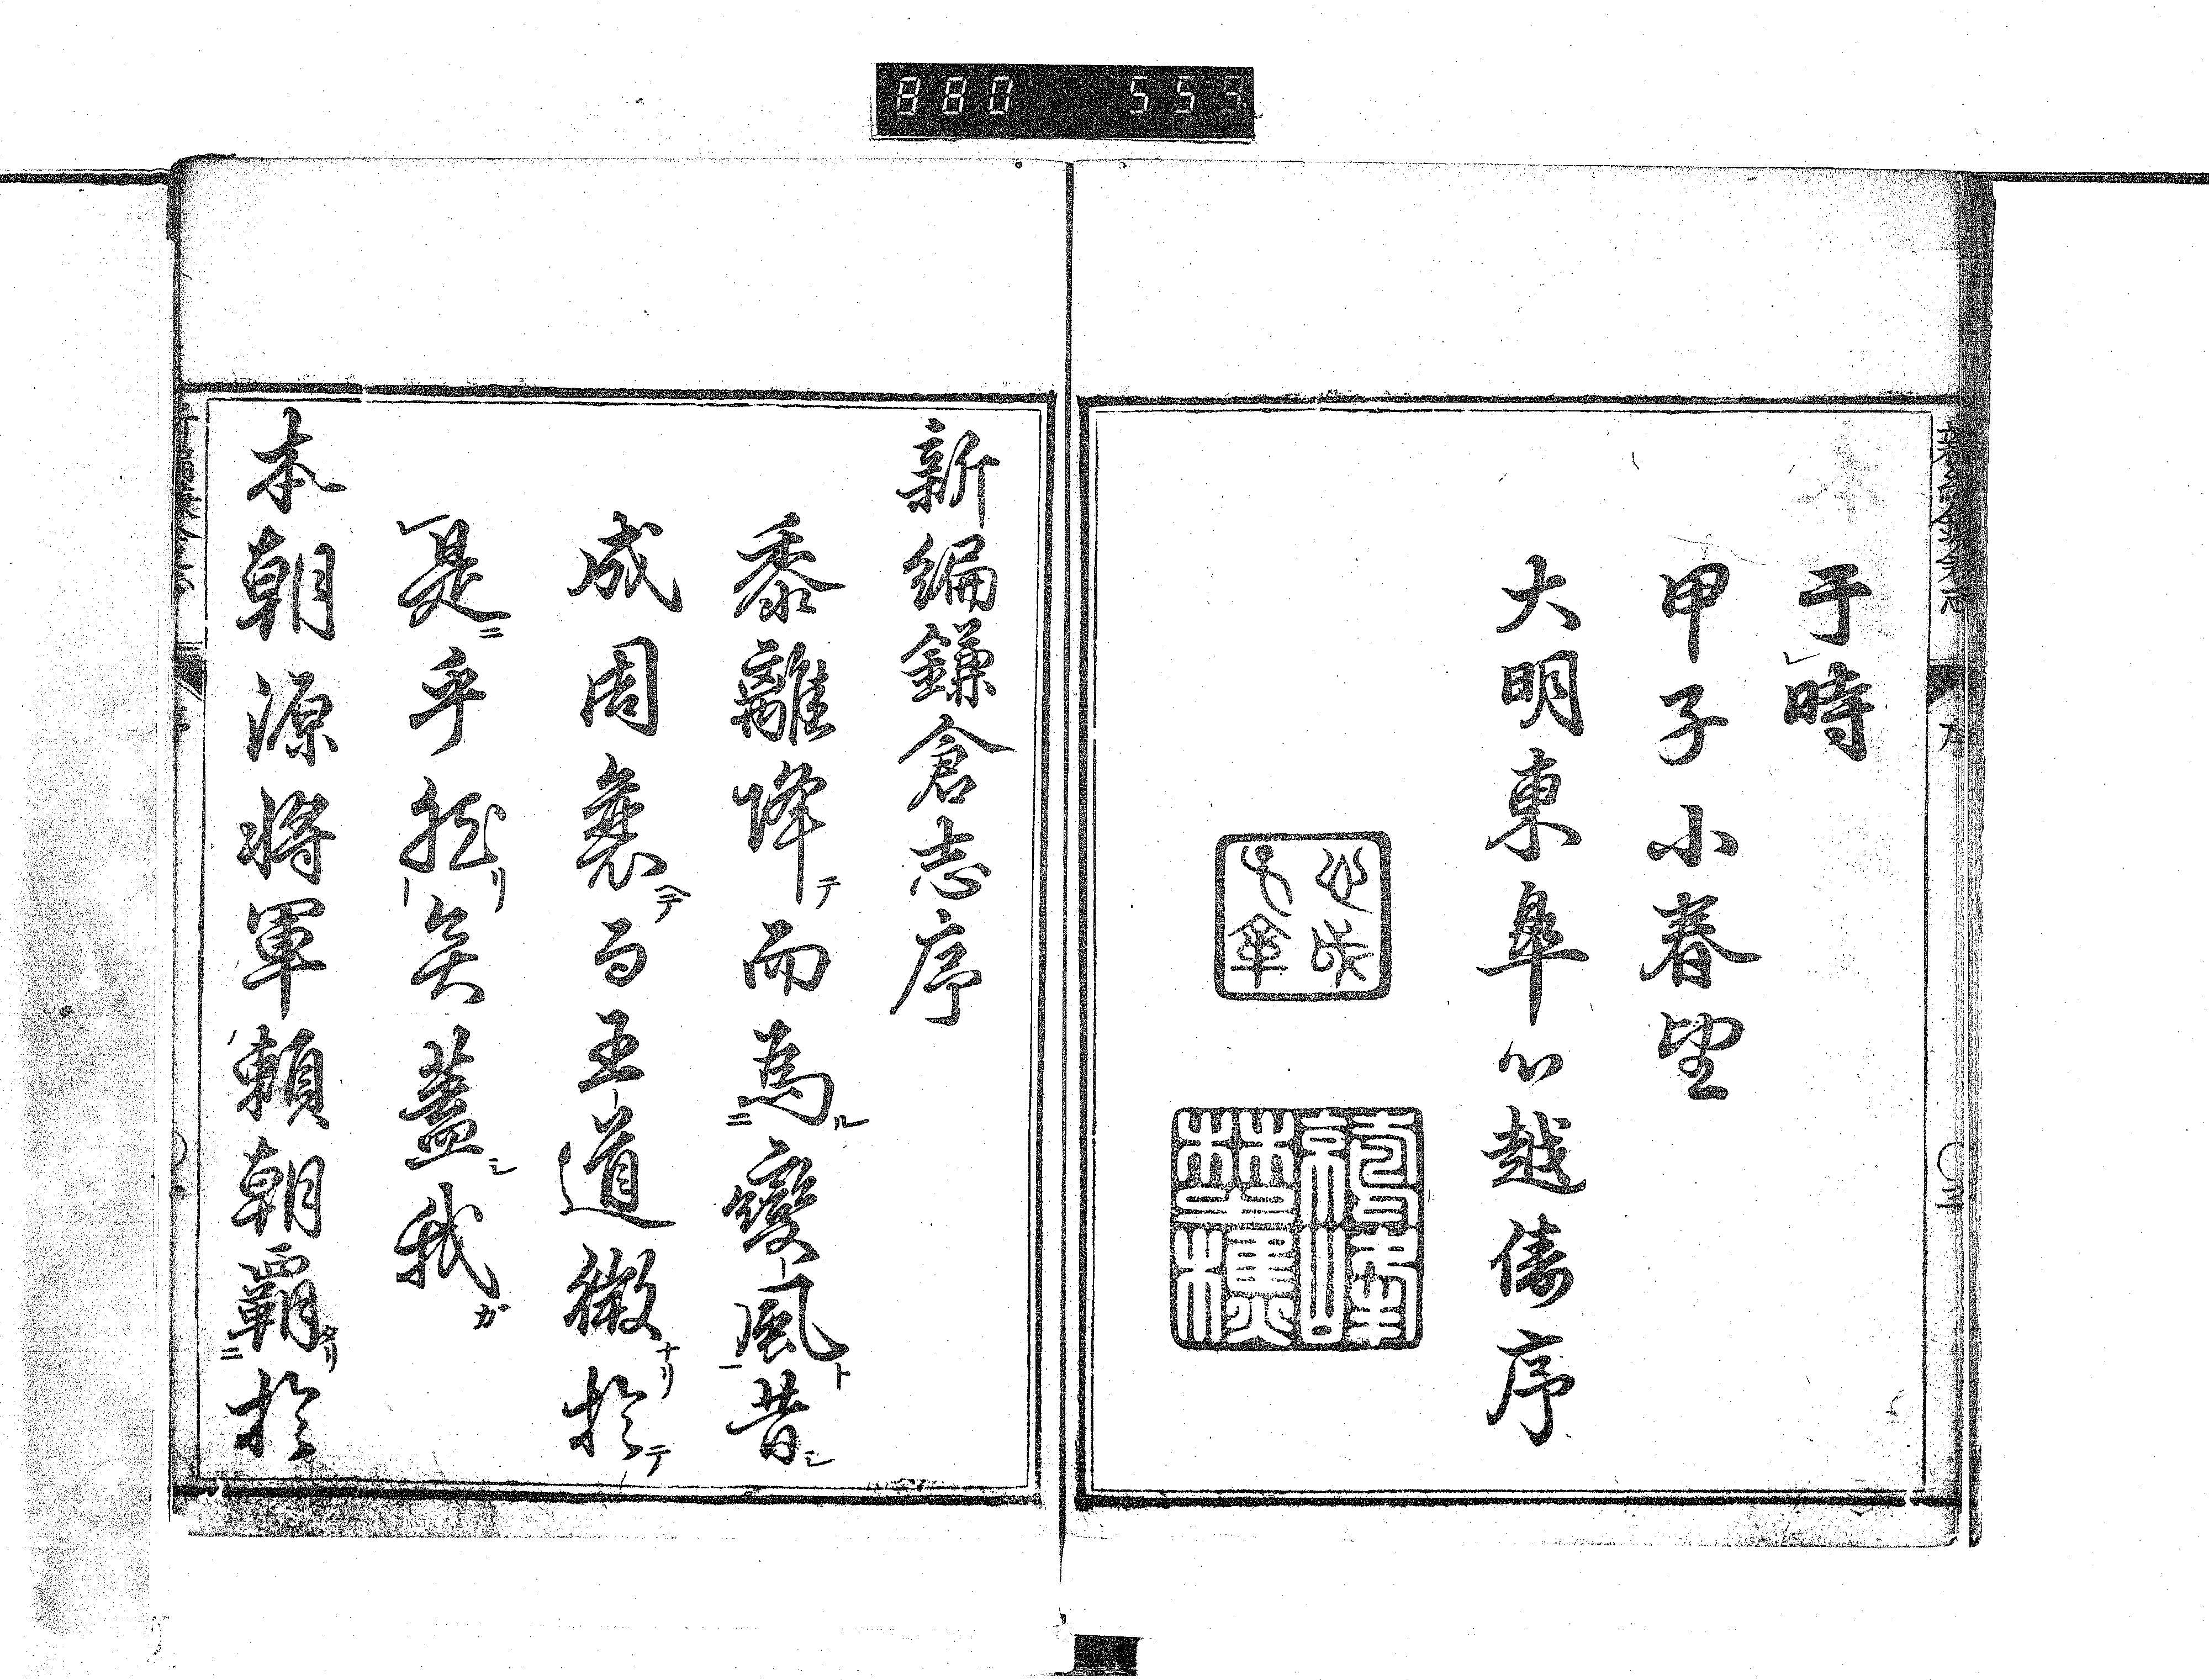 880 55
于時
甲子小春望
大明東皐心越儔序
新編鎌倉志序
黍離降テ而為ルニ變風ト一昔シ
成周衰ヘテ而王道微ナリ於テ
是ニ乎於矣蓋シ我ガ
本朝源將軍頼朝覇タリニ於